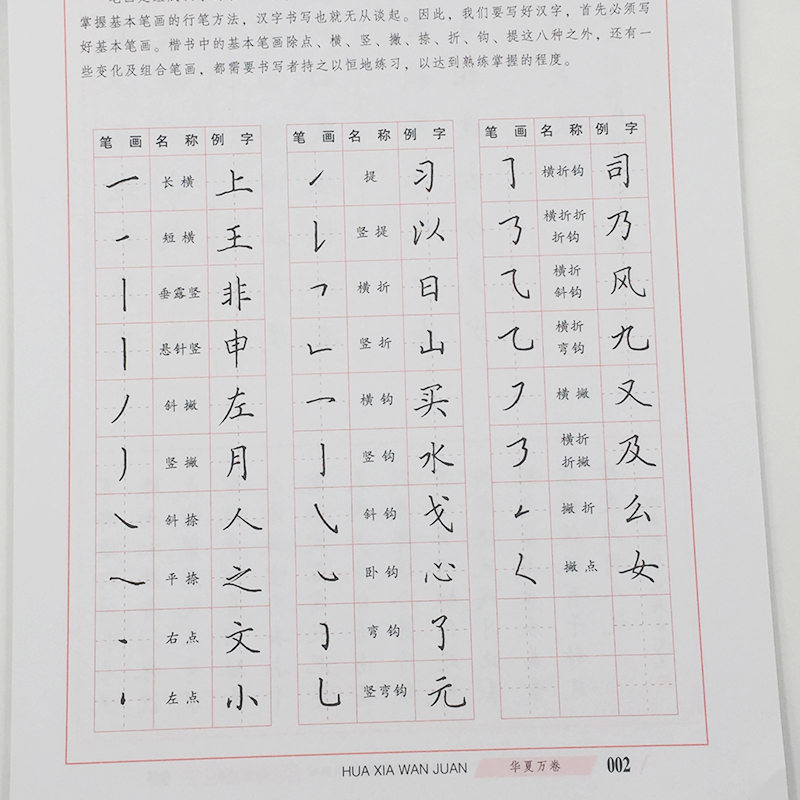 掌握基本笔画的行笔方法，汉字书写也就无从谈起。因此，我们要写好汉字，首先必须写
好基本笔画。楷书中的基本笔画除点、横、竖、撇、捺、折、钩、提这八种之外，还有一
些变化及组合笔画，都需要书写者持之以恒地练习，以达到熟练掌握的程度。
笔画 名称 例字
长横 上
短横 王
垂露竖 非
悬针竖 申
斜撇 左
竖撇 月
斜捺 人
平捺 之
右点 文
左点 小
笔画 名称 例字
提 习
竖提 以
横折 日
竖折 山
横钩 买
竖钩 水
斜钩 戈
卧钩 心
弯钩 了
竖弯钩 元
笔画 名称 例字
横折钩 司
横折折
折钩 乃
横折
斜钩 风
横折
弯钩 九
横撇 又
横折
折撇 及
撇折 么
撇点 女
HUA XIA WAN JUAN 华夏万卷 002